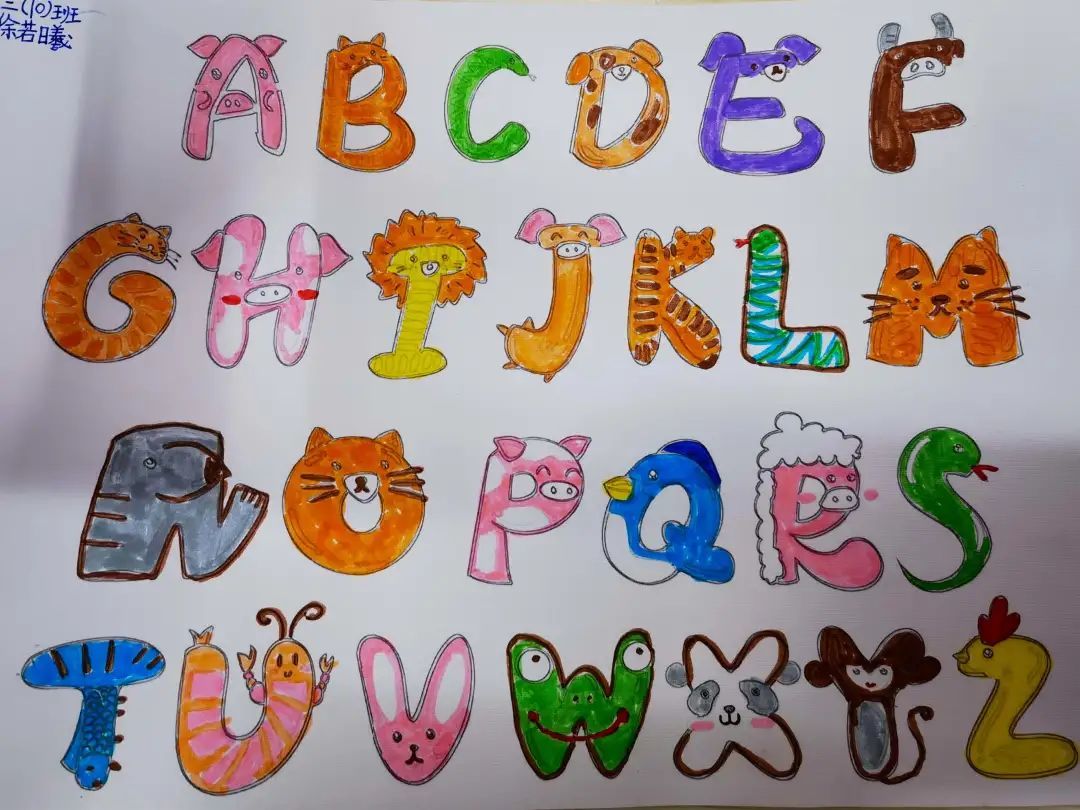 三(10)班
徐若曦
A B C D E F
G H I J K L M
N O P Q R S
T U V W X Y Z